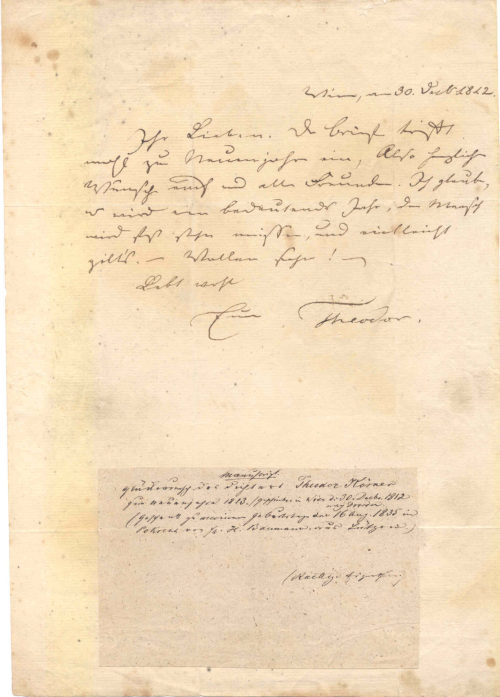 Wien, am 30. Decb. 1812.
Ihr Lieben. Der Brief trifft
wohl zu Neuenjahr ein, Also herzliche
Wünsche euch und allen Freunden. Ich glaube,
es wird ein bedeutendes Jahr, der Mensch
wird fest stehn müssen, und vielleicht
gilt's. — Wollen sehn! —
Lebt wohl
Euer Theodor.
Manuscript
des Dichters Theodor Körner
zum neuen Jahre 1813. Wien d. 30. Decbr. 1812
zu meinem Geburtstage den 16 Aug. 1835
von H. Baumann aus